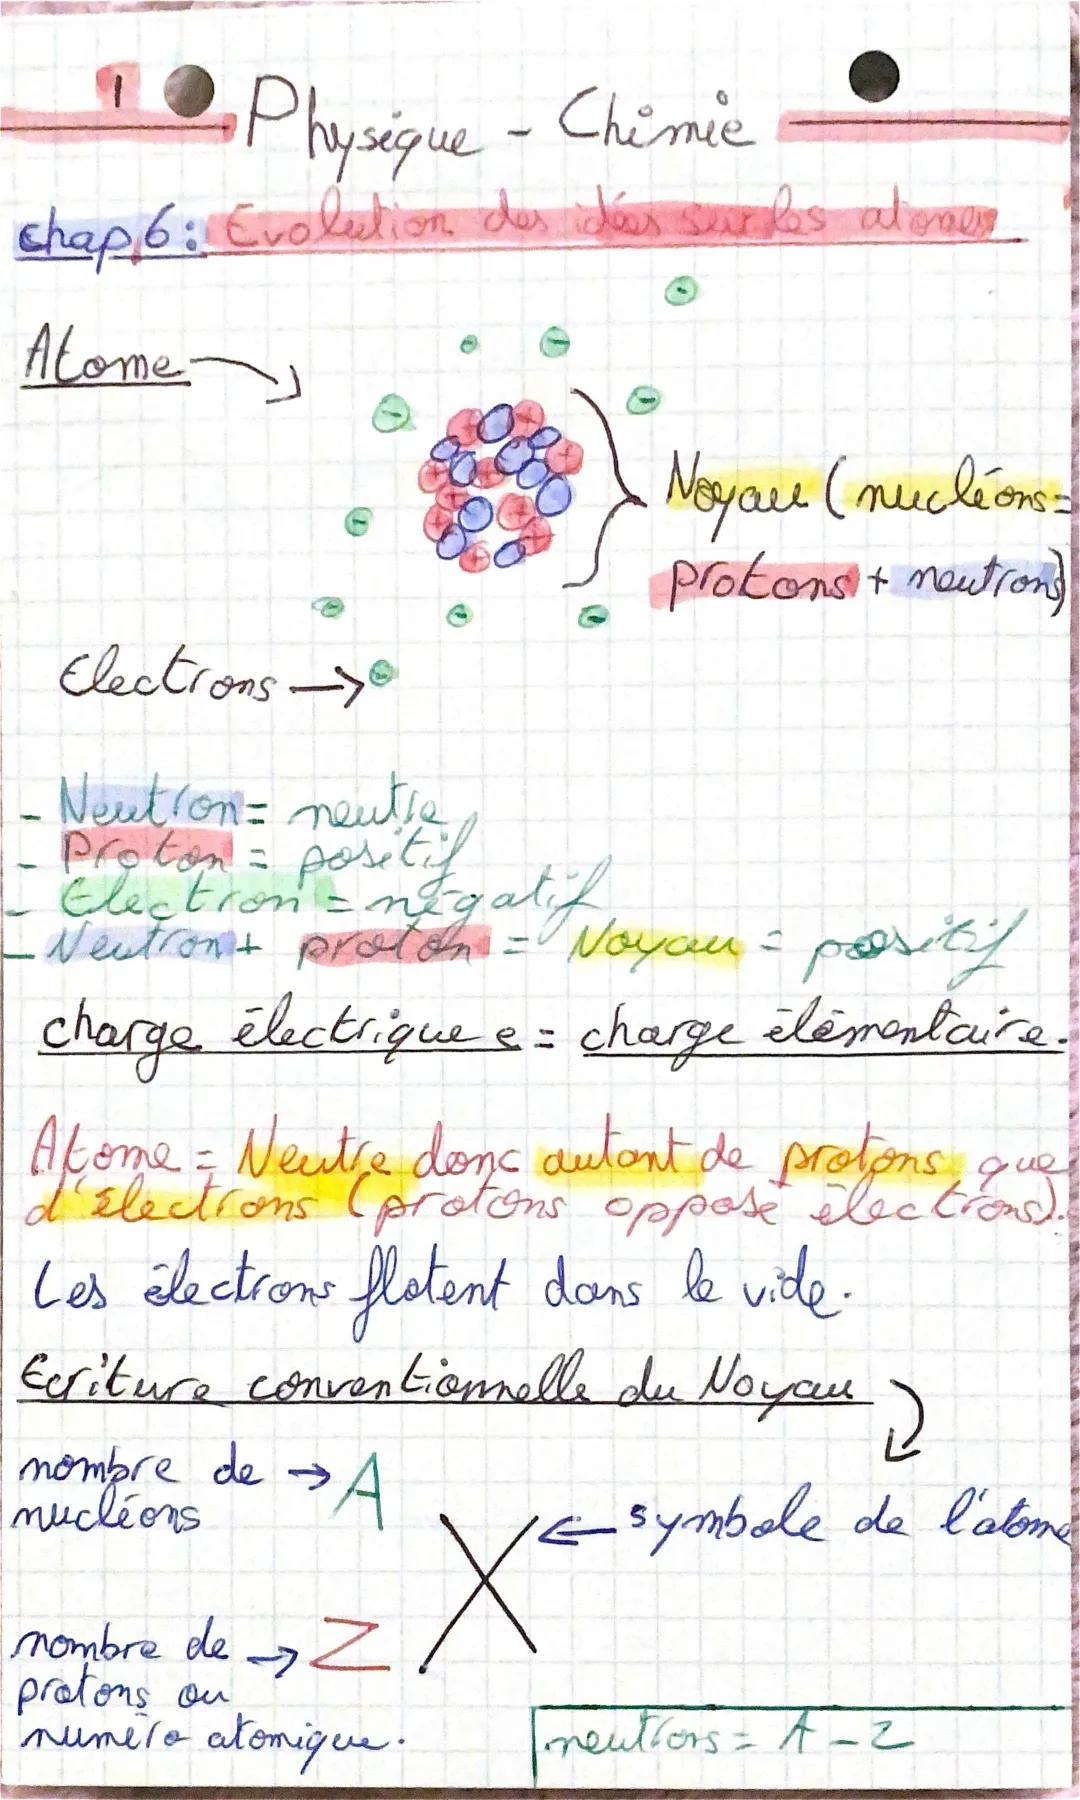 1 Physique - Chimie
chap 6: Evolution des idées sur les atomes
Atome
Noyau (nucléons =
protons + neutrons)
Electrons →
- Neutron = neutre
- Proton = positif
- Electron = négatif
- Neutron + proton = Noyau = positif
charge électrique e = charge élémentaire.
Atome = Neutre donc autant de protons que
d'électrons (protons opposé électrons).
Les électrons flotent dans le vide.
Ecriture conventionnelle du Noyau
nombre de → A
nucléons
X ← symbole de l'atome
nombre de → Z
protons ou
numéro atomique.
neutrons = A - Z